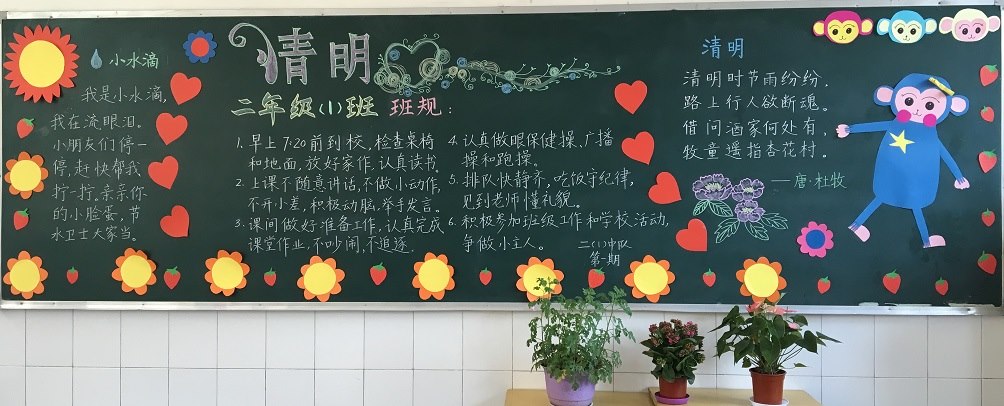 小水滴
我是小水滴，
我在流眼泪。
小朋友们停一
停，赶快帮我
拧一拧。亲亲你
的小脸蛋，节
水卫士大家当。
清明
二年级(1)班 班规：
1.早上7:20前到校，检查桌椅
和地面，放好家作，认真读书。
2.上课不随意讲话，不做小动作，
不开小差，积极动脑，举手发言。
3.课间做好准备工作，认真完成
课堂作业，不吵闹，不追逐。
4.认真做眼保健操、广播
操和跑操。
5.排队快静齐，吃饭守纪律，
见到老师懂礼貌。
6.积极参加班级工作和学校活动，
争做小主人。
二(1)中队
第一期
清明
清明时节雨纷纷，
路上行人欲断魂。
借问酒家何处有，
牧童遥指杏花村。
——唐·杜牧